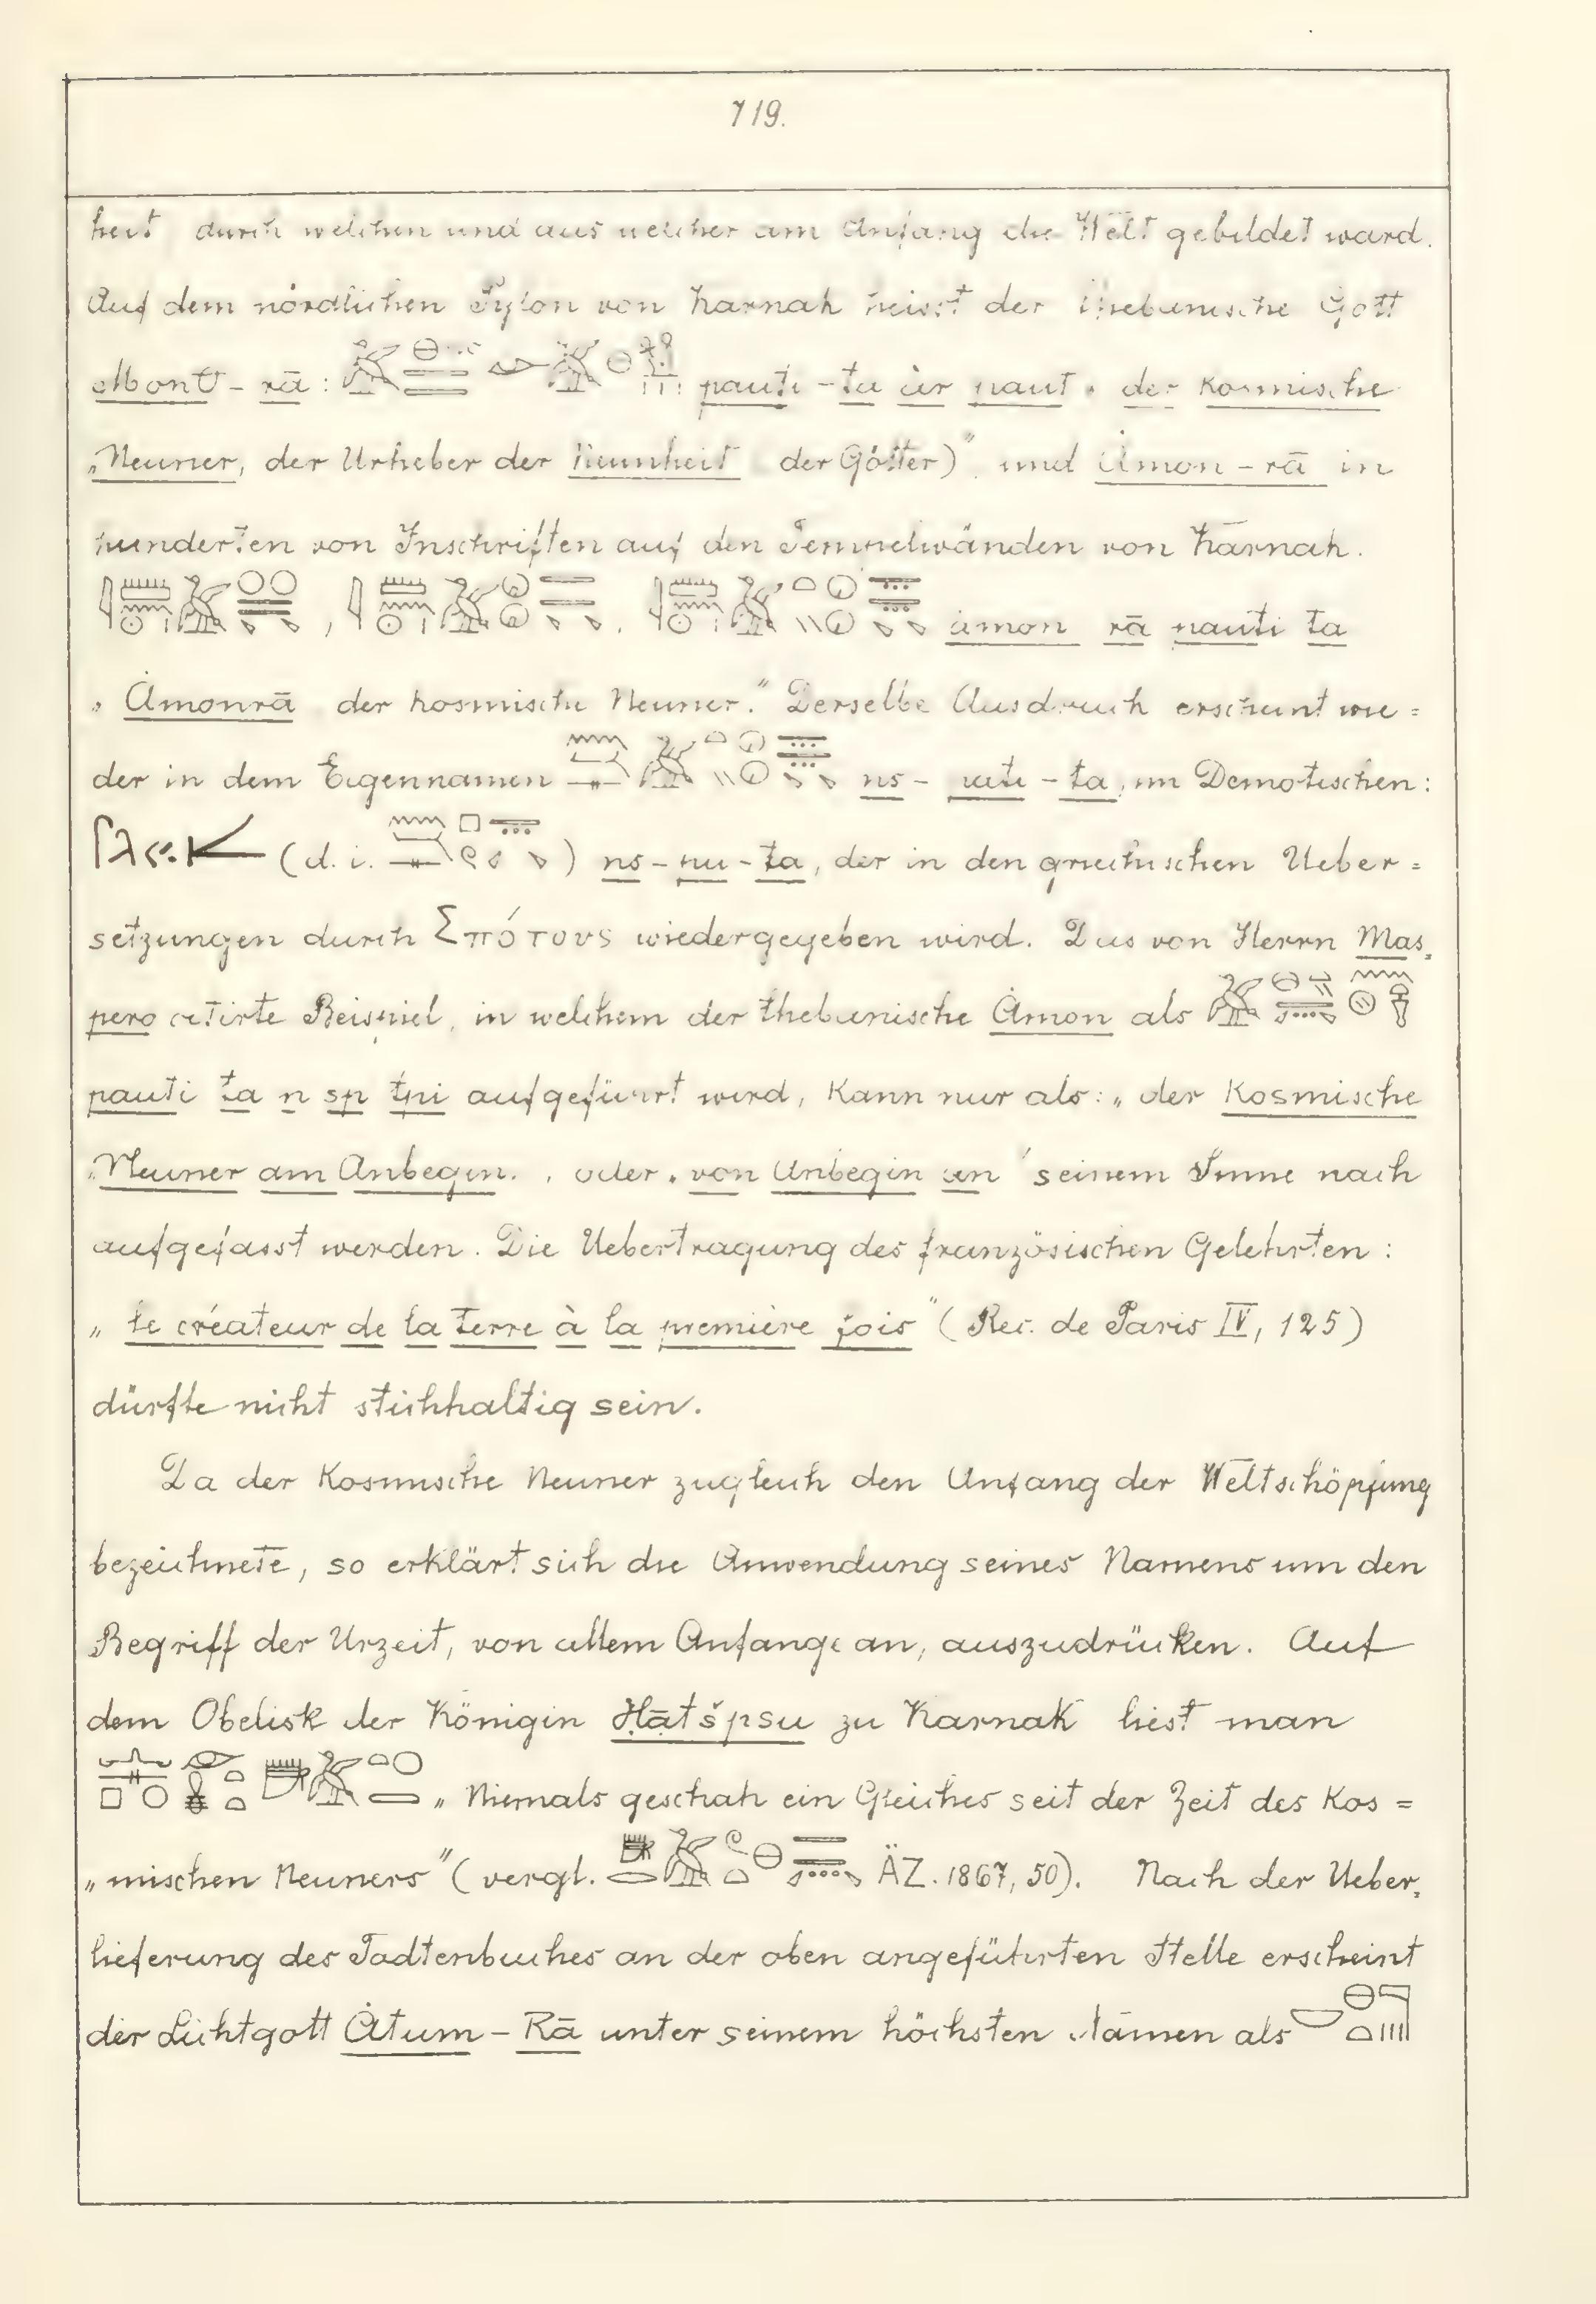 719.
heit durch welchen und aus welcher am Anfang die Welt gebildet ward.
Auf dem nördlichen Pylon von Karnak heisst der thebanische Gott
Montθ-rā: pauti-ta àr paut „der kosmische
„Neuner, der Urheber der Neunheit der Götter)" und Àmon-rā in
hunderten von Inschriften auf den Tempelwänden von Karnak.
, , àmon rā pauti ta
„Àmonrā der kosmische Neuner." Derselbe Ausdruck erscheint wie=
der in dem Eigennamen ns- -ta, im Demotischen:
(d. i. ) ns-pu-ta, der in den griechischen Ueber=
setzungen durch Σπότους wiedergegeben wird. Das von Herrn Mas=
pero citirte Beispiel, in welchem der thebanische Àmon als
pauti ta n sp tpi aufgeführt wird, kann nur als: „der Kosmische
„Neuner am Anbegin", oder „von Anbegin an" seinem Sinne nach
aufgefasst werden. Die Uebertragung des französischen Gelehrten:
„le créateur de la terre à la première fois" (Rec. de Paris IV, 125)
dürfte nicht stichhaltig sein.
Da der Kosmische Neuner zugleich den Anfang der Weltschöpfung
bezeichnete, so erklärt sich die Anwendung seines Namens um den
Begriff der Urzeit, von allem Anfange an, auszudrücken. Auf
dem Obelisk der Königin Ḥātšpsu zu Karnak liest man
„Niemals geschah ein Gleiches seit der Zeit des Kos=
„mischen Neuners" (vergl. ÄZ. 1867, 50). Nach der Ueber=
lieferung des Todtenbuches an der oben angeführten Stelle erscheint
der Lichtgott Àtum-Rā unter seinem höchsten Namen als